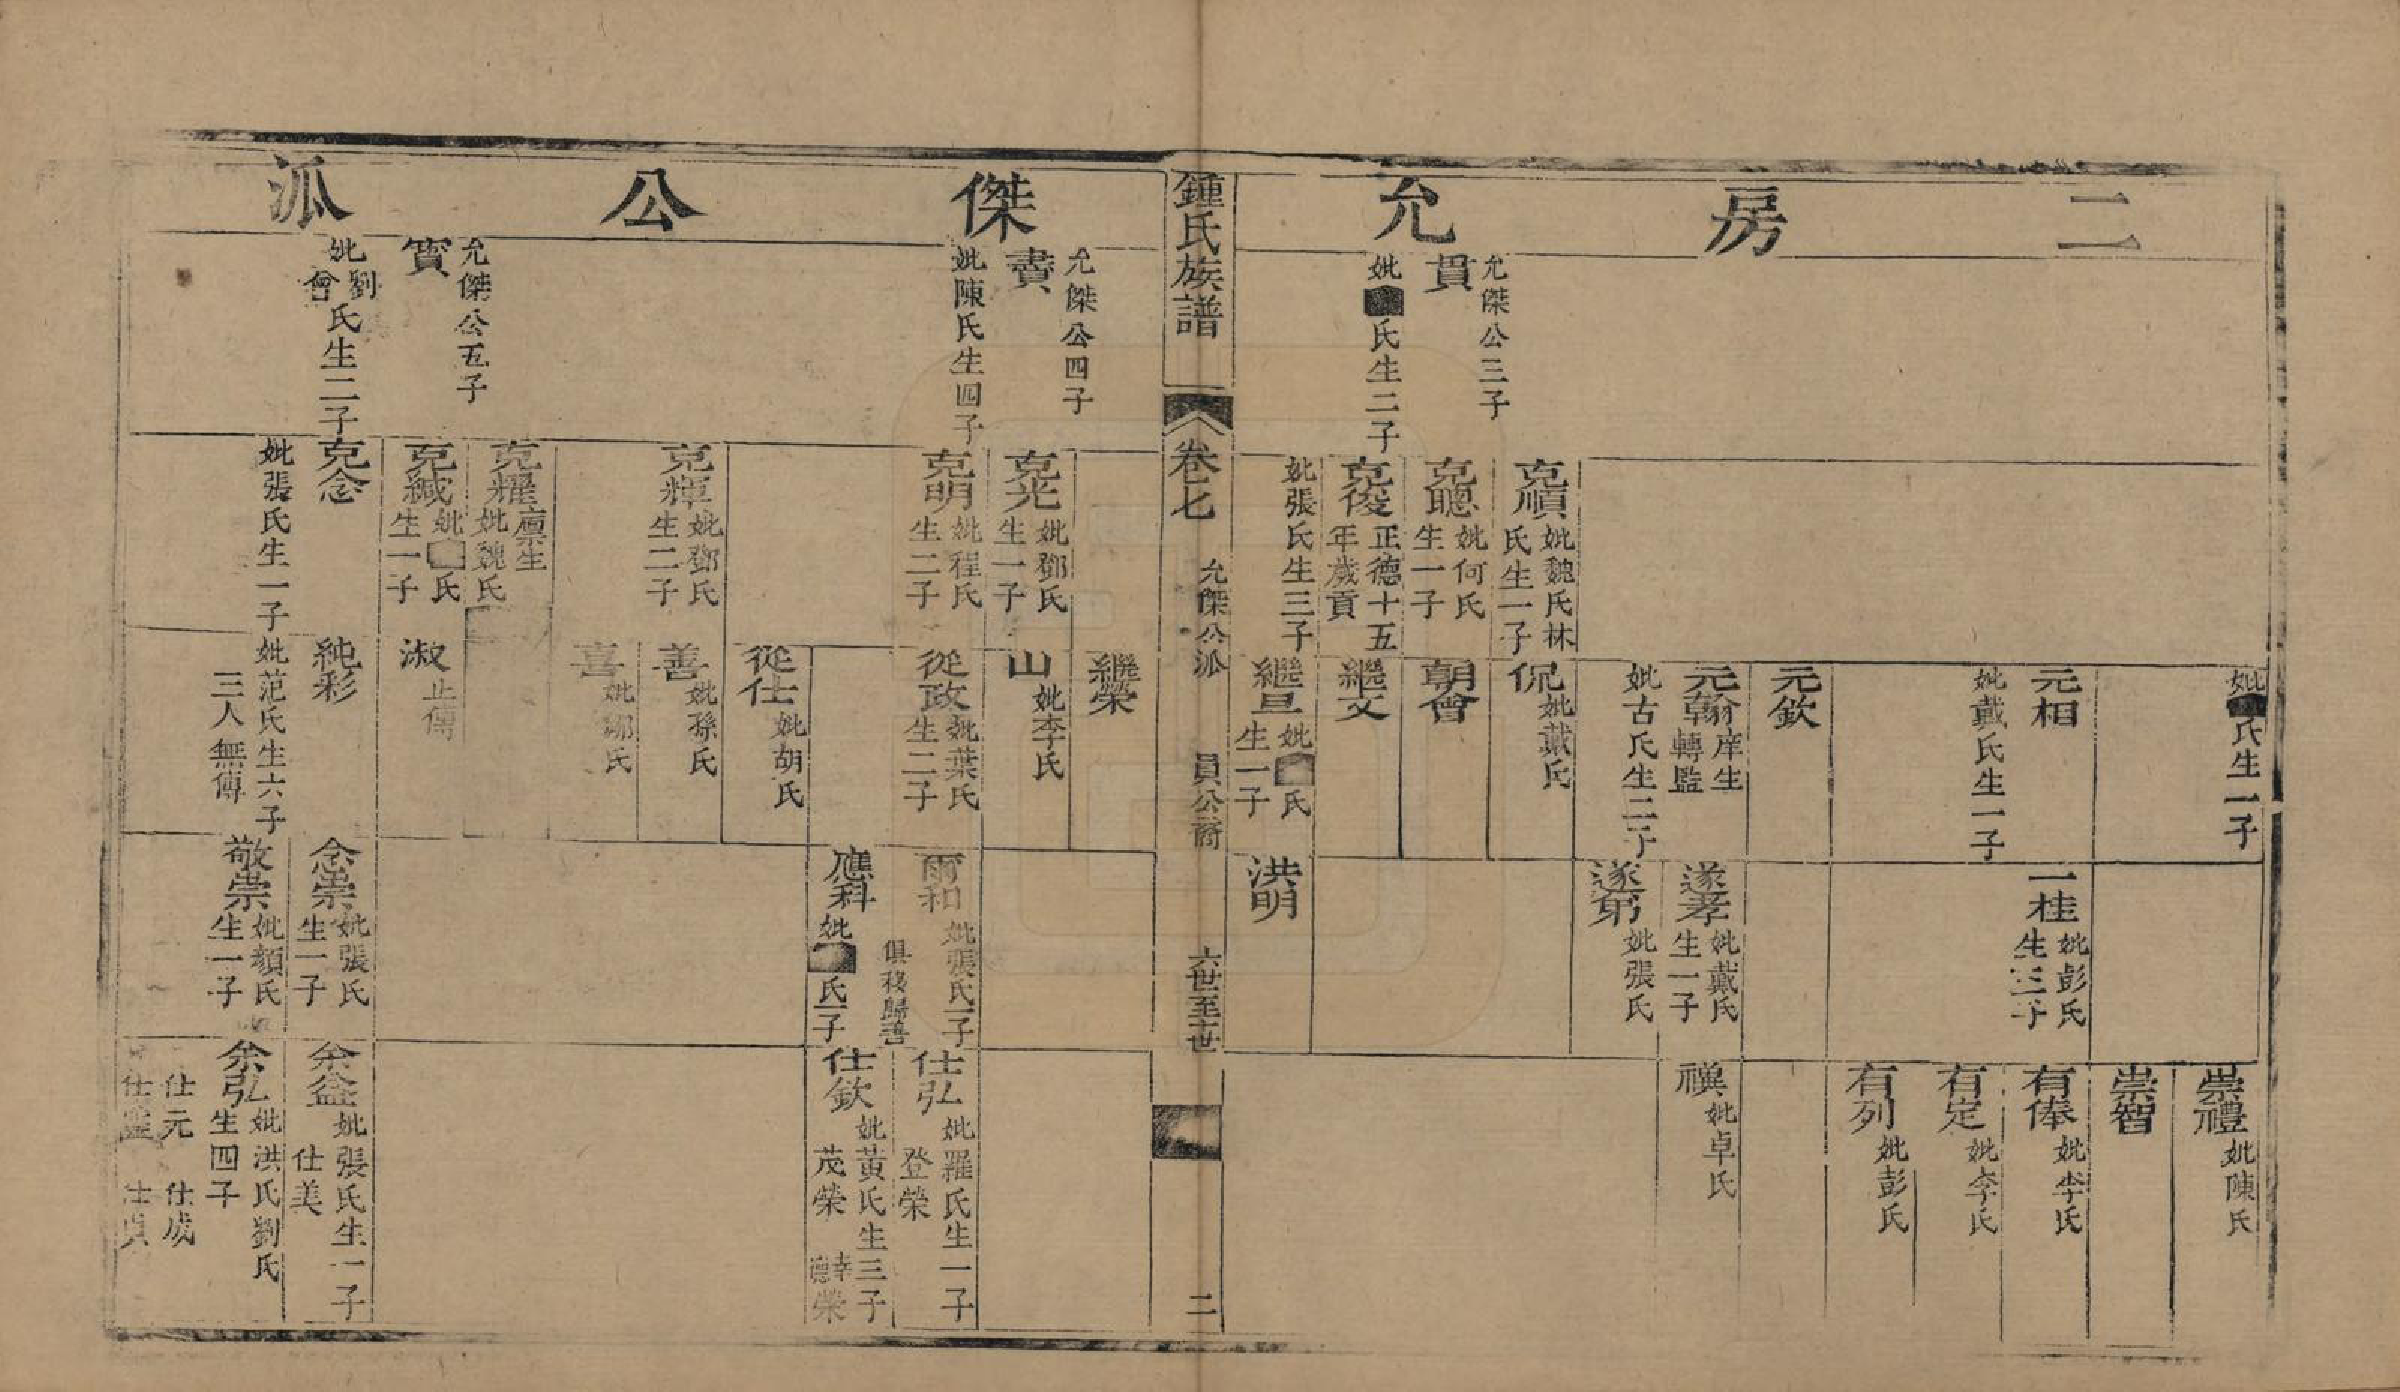 二房允傑公派
允傑公三子
貫
妣氏生二子
克順
妣魏氏林
氏生一子
克聰
妣何氏
生一子
克俊
正德十五
年歲貢
妣張氏生三子
妣氏生一子
元相
妣戴氏生一子
元欽
元翰
庠生
轉監
妣古氏生二子
侃
妣戴氏
朝會
繼文
繼亘
妣氏
生一子
一桂
妣彭氏
生三子
遂孝
妣戴氏
生一子
遂第
妣張氏
洪明
崇禮
妣陳氏
崇智
有俸
妣李氏
有定
妣李氏
有列
妣彭氏
禩
妣卓氏
鍾氏族譜
卷七
允傑公派
員公裔
六世至十世
二
允傑公四子
賮
妣陳氏生四子
允傑公五子
寳
妣劉曾氏生二子
克光
妣鄧氏
生一子
克明
妣程氏
生二子
克輝
妣鄧氏
生二子
克耀
廩生
妣魏氏
克緘
妣氏
生一子
克念
妣張氏生一子
繼榮
山
妣李氏
從政
妣葉氏
生二子
從仕
妣胡氏
善
妣孫氏
喜
妣鄒氏
淑
止傳
純彩
妣范氏生六子
三人無傳
爾和
妣張氏一子
俱移歸善
應科
妣氏一子
念崇
妣張氏
生一子
敬崇
妣顏氏
生一子
仕弘
妣羅氏生一子
登榮
仕欽
妣黃氏生三子
茂榮 幸 德榮
余益
妣張氏生一子
仕美
余弘
妣洪氏劉氏
生四子
仕元 仕成
仕 仕貞